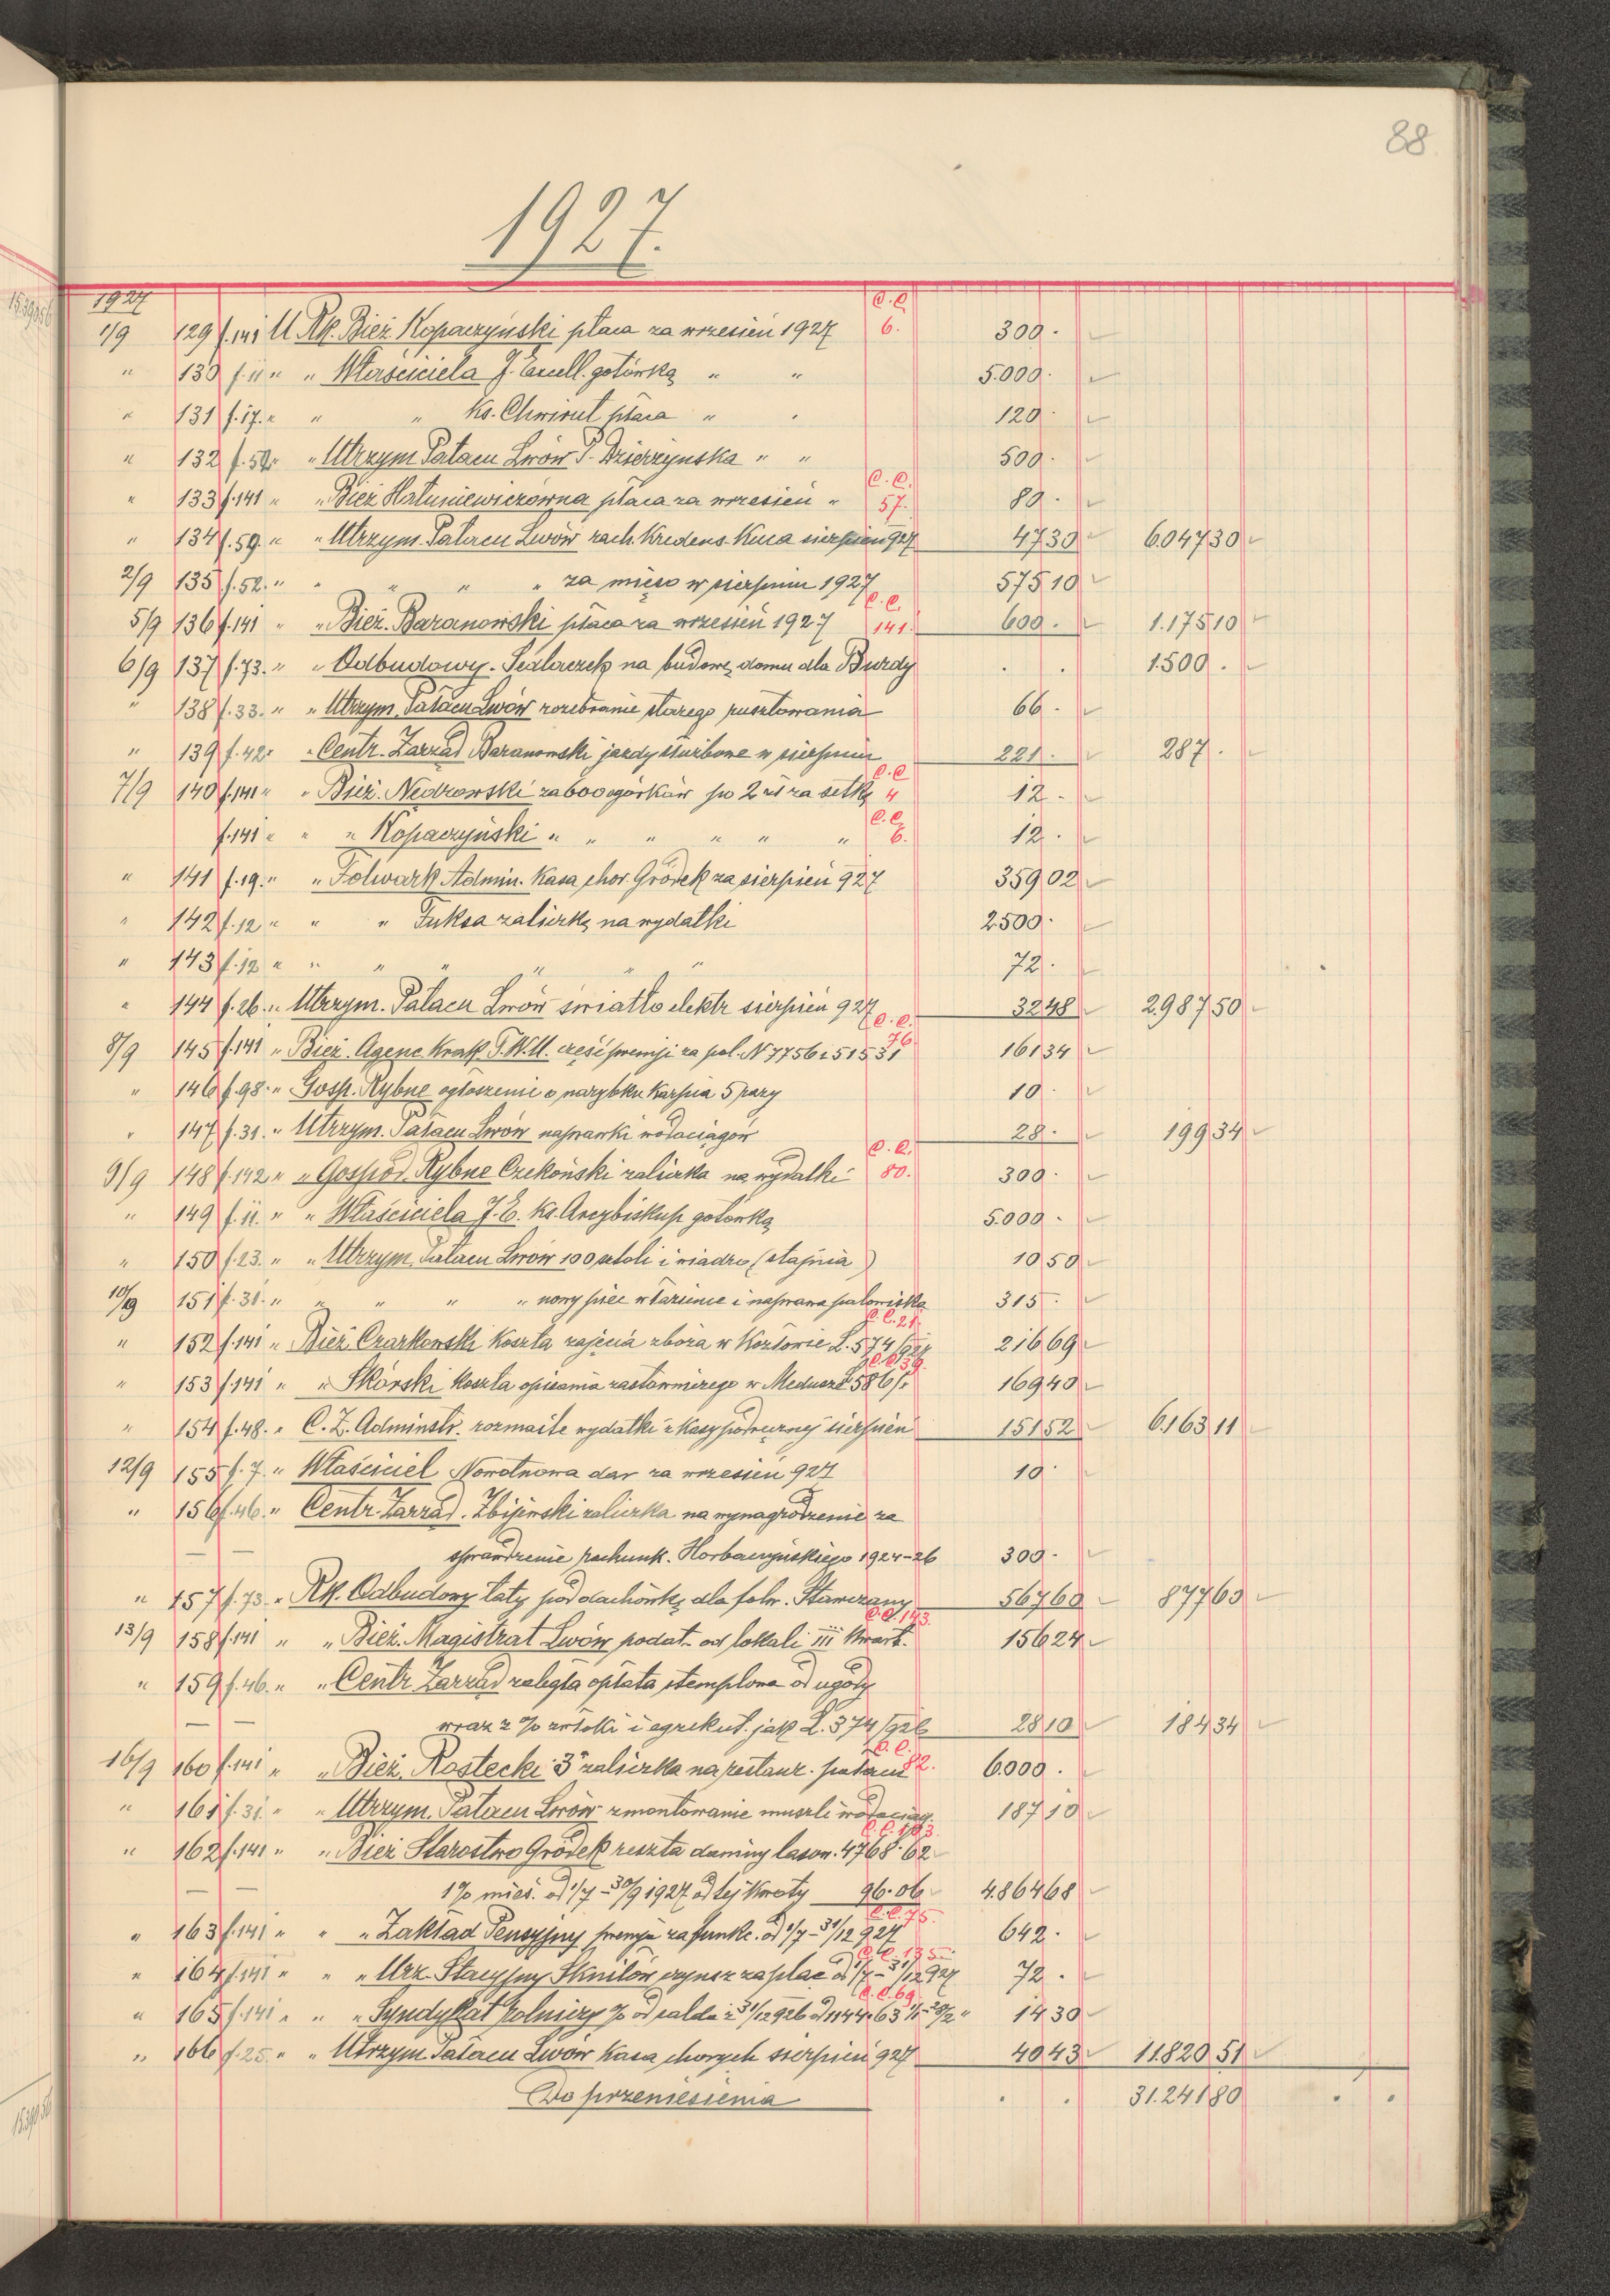 88
1927.
1927 C.C.
1/9 129 f.141 U Rk. Bież. Kopaczyński płaca za wrzesień 1927 6. 300 .
" 130 f. 11 " " Właściciela J. Excell. gotówką " " 5.000 .
" 131 f. 17. " " " Ks. Chwirut płaca " " 120
" 132 f. 52. " Utrzym Pałacu Lwów P. Dzierżyńska " " 500 .
" 133 f. 141 " " Bież Hałuniewiczówna płaca za wrzesień " C.C. 57. 80 .
" 134 f. 59. " " Utrzym. Pałacu Lwów rach. Kredens. Kuca sierpień 927 47 30 6.047 30
2/9 135 f. 52. " " " " " za mięso w sierpniu 1927 575 10
5/9 136 f. 141 " " Bież. Baranowski płaca za wrzesień 1927 C.C. 141. 600 . 1.175 10
6/9 137 f. 73. " " Odbudowy. Sedlaczek na budowę domu dla Burdy . . 1.500 .
" 138 f. 33. " " Utrzym. Pałacu Lwów rozebranie starego rusztowania 66 .
" 139 f. 42. " Centr. Zarząd Baranowski jazdy służbowe w sierpniu 221 . 287 .
7/9 140 f. 141 " " Bież. Nedzowski za 600 ogórków po 2 zł za setkę C.C 4 12 .
f. 141 " " " Kopaczyński " " " " " " C.C. 6. 12 .
" 141 f. 19. " " Folwark Admin. Kasa chor. Gródek za sierpień 927 359 02
" 142 f. 12 " " " Fuksa zaliczkę na wydatki 2500 .
" 143 f. 12 " " " " " " " 72 .
" 144 f. 26. " Utrzym. Pałacu Lwów światło elektr sierpień 927 32 48 2.987 50
8/9 145 f. 141 " Bież. Agenc. Krak. T.W.U. część premji za pol. N 7756 i 51531 C.C. 76. 161 34
" 146 f. 98. " Gosp. Rybne ogłoszenie o narybku karpia 5 razy 10 .
" 147 f. 31. " Utrzym. Pałacu Lwów naprawki wodociągów 28 . 199 34
9/9 148 f. 142 " " Gospod. Rybne Czekoński zaliczka na wydatki C.C. 80. 300 .
" 149 f. 11. " " Właściciela J. E. Ks. Arcybiskup gotówką 5.000 .
" 150 f. 23. " " Utrzym. Pałacu Lwów 100 sztoli i wiadro (stajnia) 10 50
10/9 151 f. 31. " " " " " nowy piec w łazience i naprawa paleniska 315 .
" 152 f. 141 " Bież Czarkowski Koszta zajęcia zboża w Kozłowie L. 574/927 C.C. 21. 216 69
" 153 f 141 " " Skórski Koszta opisania zastawniczego w Meduszé 586/" C.C. 39. 169 40
" 154 f. 48. " C. Z. Adminstr. rozmaite wydatki z Kasy podręcznej sierpień 151 52 6.163 11
12/9 155 f. 7. " Właściciel Nowotnowa dar za wrzesień 927 10 .
" 156 f. 46. " Centr. Zarząd. Zbijewski zaliczka na wynagrodzenie za
— — sprawdzenie rachunk. Horbaczyńskiego 1924-26 300 .
" 157 f. 73. " Rk. Odbudowy łaty pod dachówkę dla folw. Stawczany 567 60 877 60
13/9 158 f. 141 " " Bież. Magistrat Lwów podat. od lokali III Kwart. C.C. 143. 156 24
" 159 f. 46. " " Centr Zarząd zaległa opłata stemplowa od ugody
— — wraz z % zwłoki i egzekut. jak L. 374/926 28 10 184 34
16/9 160 f. 141 " " Bież. Rostecki 3a zaliczka na restaur. pałacu C.C. 82. 6.000 .
" 161 f. 31. " " Utrzym. Pałacu Lwów zmontowanie muszli wodociąg. 187 10
" 162 f. 141 " " Bież Starostwo Gródek reszta daniny lasow. 4768.62 C.C. 103.
— — 1% mies. od 1/7 - 30/9 1927 od tej kwoty 96.06 4.864 68
" 163 f. 141 " " " Zakład Pensyjny premja za funkc. od 1/7 - 31/12 927 C.C. 75. 642 .
" 164 f. 141 " " " Urz. Stacyjny Skniłów czynsz za plac od 1/7 - 31/12 927 C.C. 135. 72 .
" 165 f. 141 " " " Syndykat Rolniczy % od salda z 31/12 926 zł 1144.63 1/1 - 28/2 " C.C. 69. 14 30
" 166 f. 25. " " Utrzym Pałacu Lwów Kasa chorych sierpień 927 40 43 11.820 51
Do przeniesienia . . 31.241 80 . .